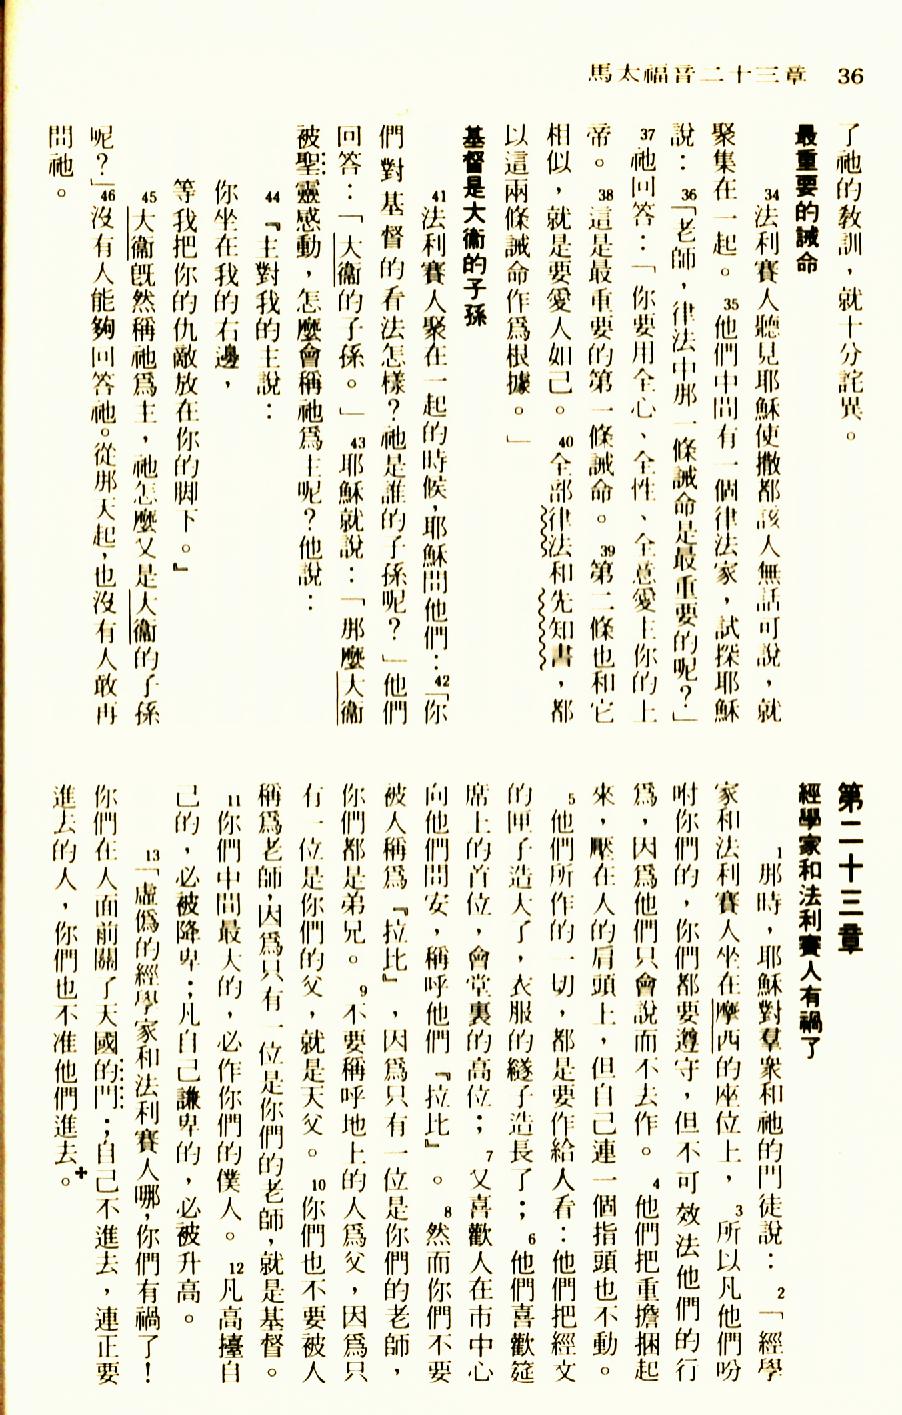 馬太福音二十三章 36
了祂的教訓，就十分詫異。
最重要的誡命
34法利賽人聽見耶穌使撒都該人無話可說，就
聚集在一起。35他們中間有一個律法家，試探耶穌
說：36「老師，律法中那一條誡命是最重要的呢？」
37祂回答：「你要用全心、全性、全意愛主你的上
帝。38這是最重要的第一條誡命。39第二條也和它
相似，就是要愛人如己。40全部律法和先知書，都
以這兩條誡命作爲根據。」
基督是大衞的子孫
41法利賽人聚在一起的時候，耶穌問他們：42「你
們對基督的看法怎樣？祂是誰的子孫呢？」他們
回答：「大衞的子孫。」43耶穌就說：「那麼大衞
被聖靈感動，怎麼會稱祂爲主呢？他說：
44『主對我的主說：
你坐在我的右邊，
等我把你的仇敵放在你的脚下。』
45大衞旣然稱祂爲主，祂怎麼又是大衞的子孫
呢？」46沒有人能夠回答祂。從那天起，也沒有人敢再
問祂。
第二十三章
經學家和法利賽人有禍了
1那時，耶穌對羣衆和祂的門徒說：2「經學
家和法利賽人坐在摩西的座位上，3所以凡他們吩
咐你們的，你們都要遵守，但不可效法他們的行
爲，因爲他們只會說而不去作。4他們把重擔捆起
來，壓在人的肩頭上，但自己連一個指頭也不動。
5他們所作的一切，都是要作給人看：他們把經文
的匣子造大了，衣服的繸子造長了；6他們喜歡筵
席上的首位，會堂裏的高位；7又喜歡人在市中心
向他們問安，稱呼他們『拉比』。8然而你們不要
被人稱爲『拉比』，因爲只有一位是你們的老師，
你們都是弟兄。9不要稱呼地上的人爲父，因爲只
有一位是你們的父，就是天父。10你們也不要被人
稱爲老師，因爲只有一位是你們的老師，就是基督。
11你們中間最大的，必作你們的僕人。12凡高擡自
己的，必被降卑；凡自己謙卑的，必被升高。
13「虛僞的經學家和法利賽人哪，你們有禍了！
你們在人面前關了天國的門；自己不進去，連正要
進去的人，你們也不准他們進去✚。